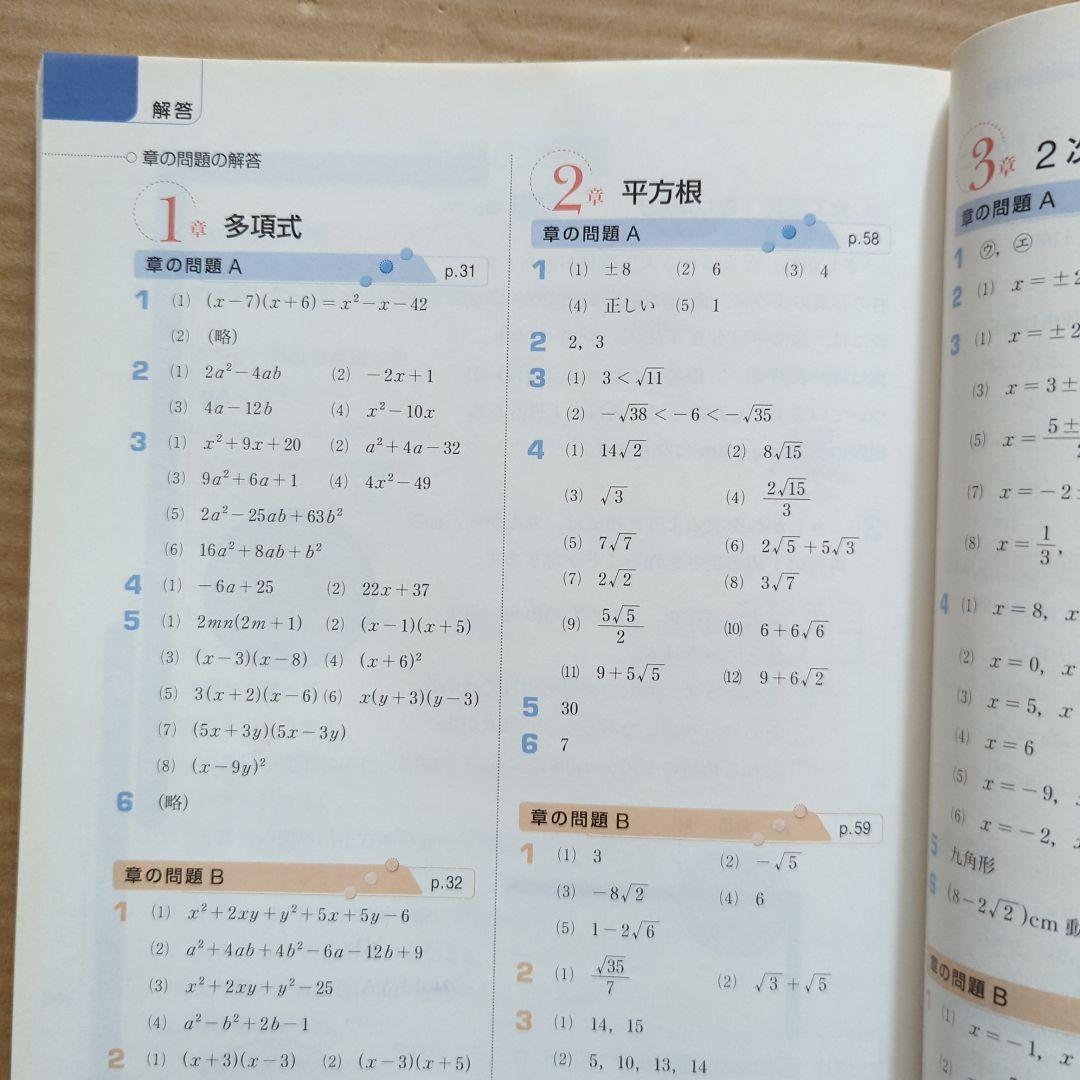 解答
章の問題の解答
1章 多項式
章の問題 A p.31
1 (1) (x−7)(x+6)=x²−x−42
(2) (略)
2 (1) 2a²−4ab (2) −2x+1
(3) 4a−12b (4) x²−10x
3 (1) x²+9x+20 (2) a²+4a−32
(3) 9a²+6a+1 (4) 4x²−49
(5) 2a²−25ab+63b²
(6) 16a²+8ab+b²
4 (1) −6a+25 (2) 22x+37
5 (1) 2mn(2m+1) (2) (x−1)(x+5)
(3) (x−3)(x−8) (4) (x+6)²
(5) 3(x+2)(x−6) (6) x(y+3)(y−3)
(7) (5x+3y)(5x−3y)
(8) (x−9y)²
6 (略)
章の問題 B p.32
1 (1) x²+2xy+y²+5x+5y−6
(2) a²+4ab+4b²−6a−12b+9
(3) x²+2xy+y²−25
(4) a²−b²+2b−1
2 (1) (x+3)(x−3) (2) (x−3)(x+5)
2章 平方根
章の問題 A p.58
1 (1) ±8 (2) 6 (3) 4
(4) 正しい (5) 1
2 2, 3
3 (1) 3<√11
(2) −√38<−6<−√35
4 (1) 14√2 (2) 8√15
(3) √3 (4) 2√15/3
(5) 7√7 (6) 2√5+5√3
(7) 2√2 (8) 3√7
(9) 5√5/2 (10) 6+6√6
(11) 9+5√5 (12) 9+6√2
5 30
6 7
章の問題 B p.59
1 (1) 3 (2) −√5
(3) −8√2 (4) 6
(5) 1−2√6
2 (1) √35/7 (2) √3+√5
3 (1) 14, 15
(2) 5, 10, 13, 14
3章 2
章の問題 A
1 ㋒, ㋓
2 (1) x=±2
3 (1) x=±2
(3) x=3±
(5) x=5±
(7) x=−2
(8) x=1/3,
4 (1) x=8, x
(2) x=0, x
(3) x=5, x
(4) x=6
(5) x=−9,
(6) x=−2,
5 九角形
6 (8−2√2)cm
章の問題 B
1 (1) x=−1, x
(2)